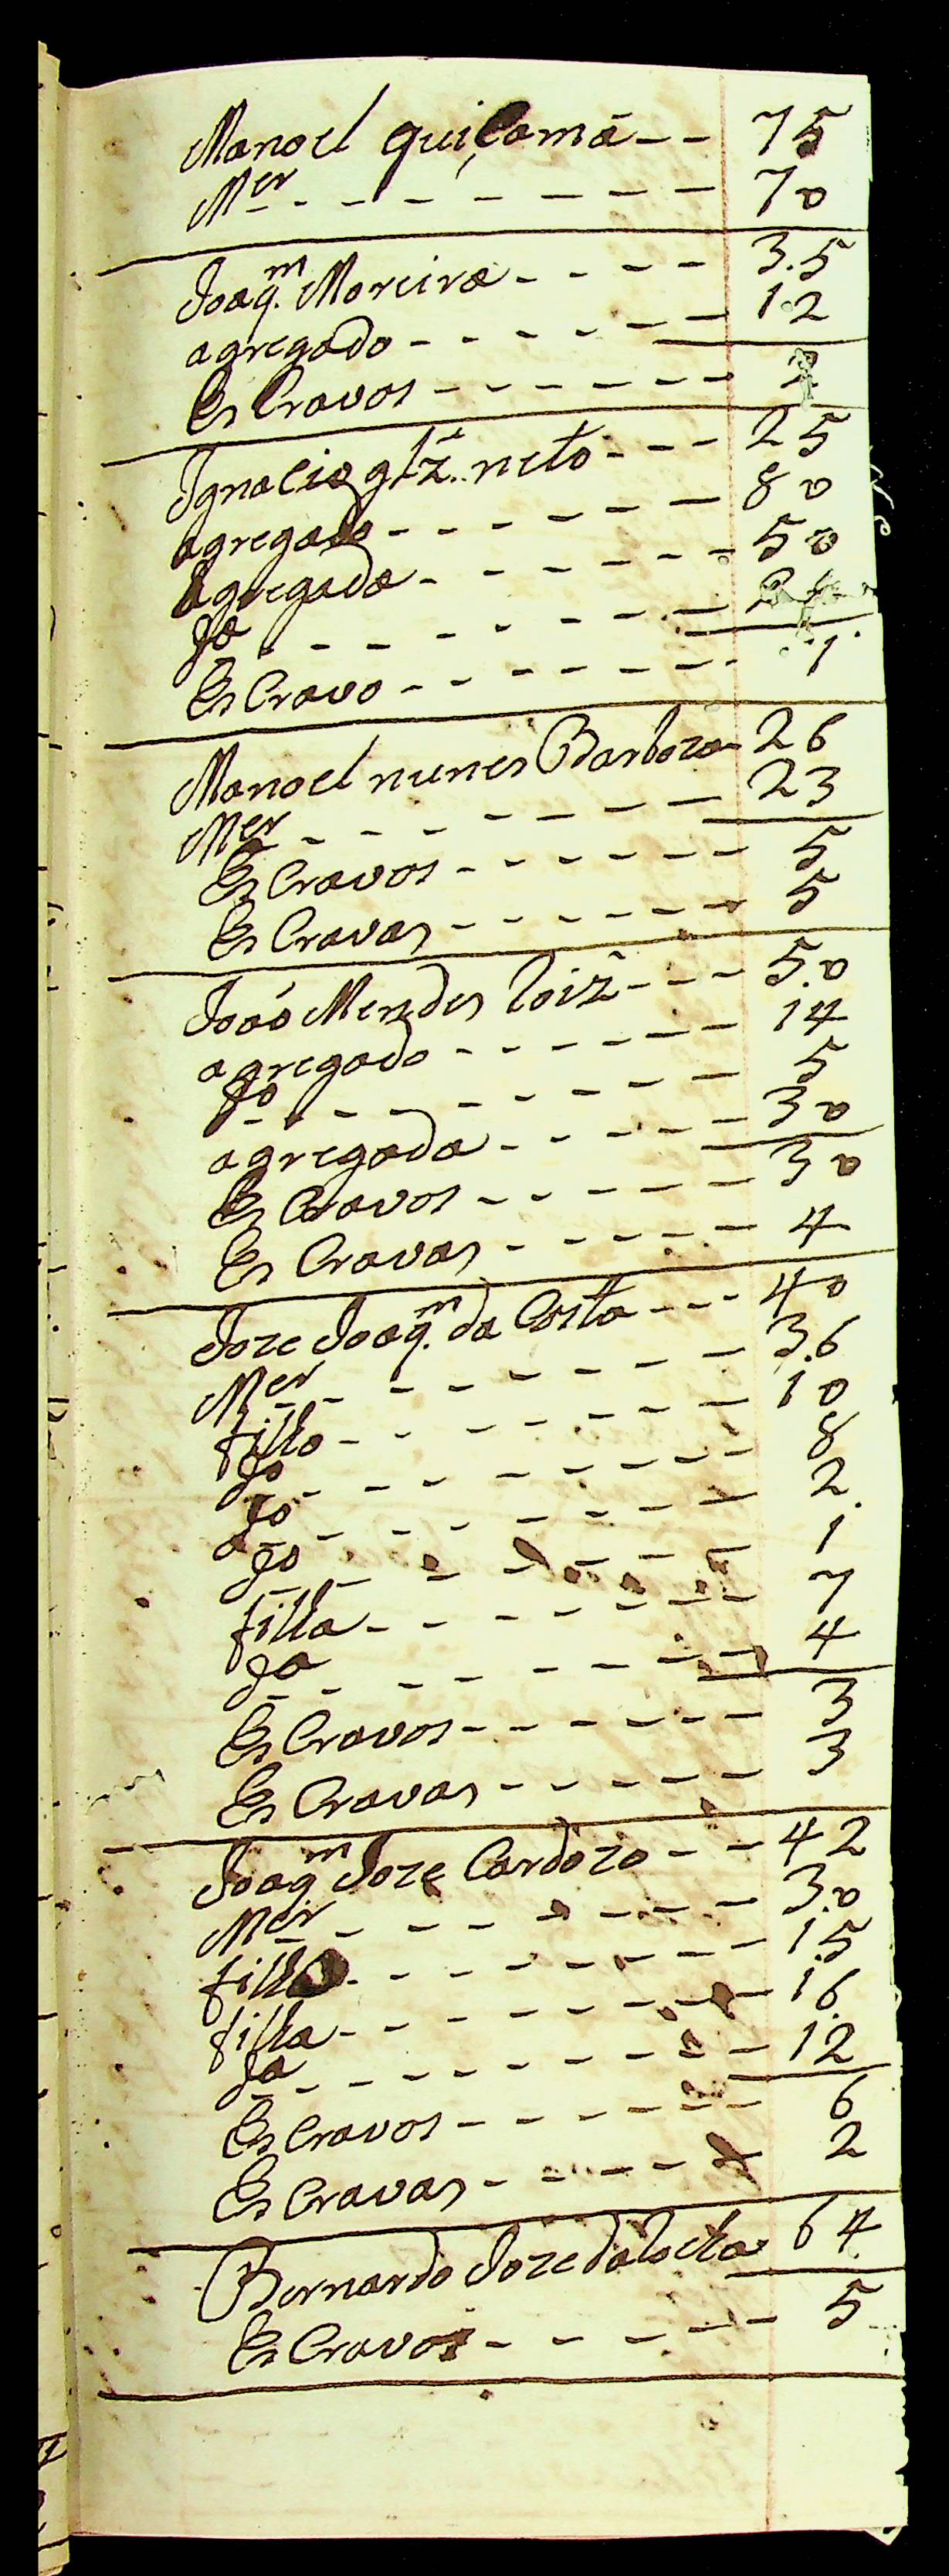 Manoel quiçamã - - 75
Mer - - - - - - - 70
Joaqm. Moreira - - - - 3.5
agregado - - - - - - 12
Es Cravos - - - - - - 2
Ignacio glz. neto - - - 25
agregado - - - - - - 80
agregada - - - - - - 50
Ja - - - - - - - - 2
Es Cravo - - - - - - - 1
Manoel nunes Barboza - 26
Mer - - - - - - - 23
Es Cravos - - - - - - 5
Es Cravas - - - - - - 5
Joaó Mendes Roiz - - - 5.0
agregado - - - - - - 14
Jo - - - - - - - - 5
agregada - - - - - 30
Es Cravos - - - - - - 30
Es Cravas - - - - - 4
Joze Joaqm. da Costa - - - 40
Mer - - - - - - - - 3.6
fillo - - - - - - - - 10
Jo - - - - - - - - 8
Jo - - - - - - - - 2
Jo - - - - - - - 1
filla - - - - - - - 7
Ja - - - - - - - - 4
Es Cravos - - - - - - 3
Es Cravas - - - - - 3
Joaqm Joze Cardozo - - - 42
Mer - - - - - - - - 3.0
fillo - - - - - - - - 1.5
filla - - - - - - - - 16
Ja - - - - - - - - 12
Es Cravos - - - - - - 6
Es Cravas - - - - - 2
Bernardo Joze da Costa 64
Es Cravos - - - - - 5